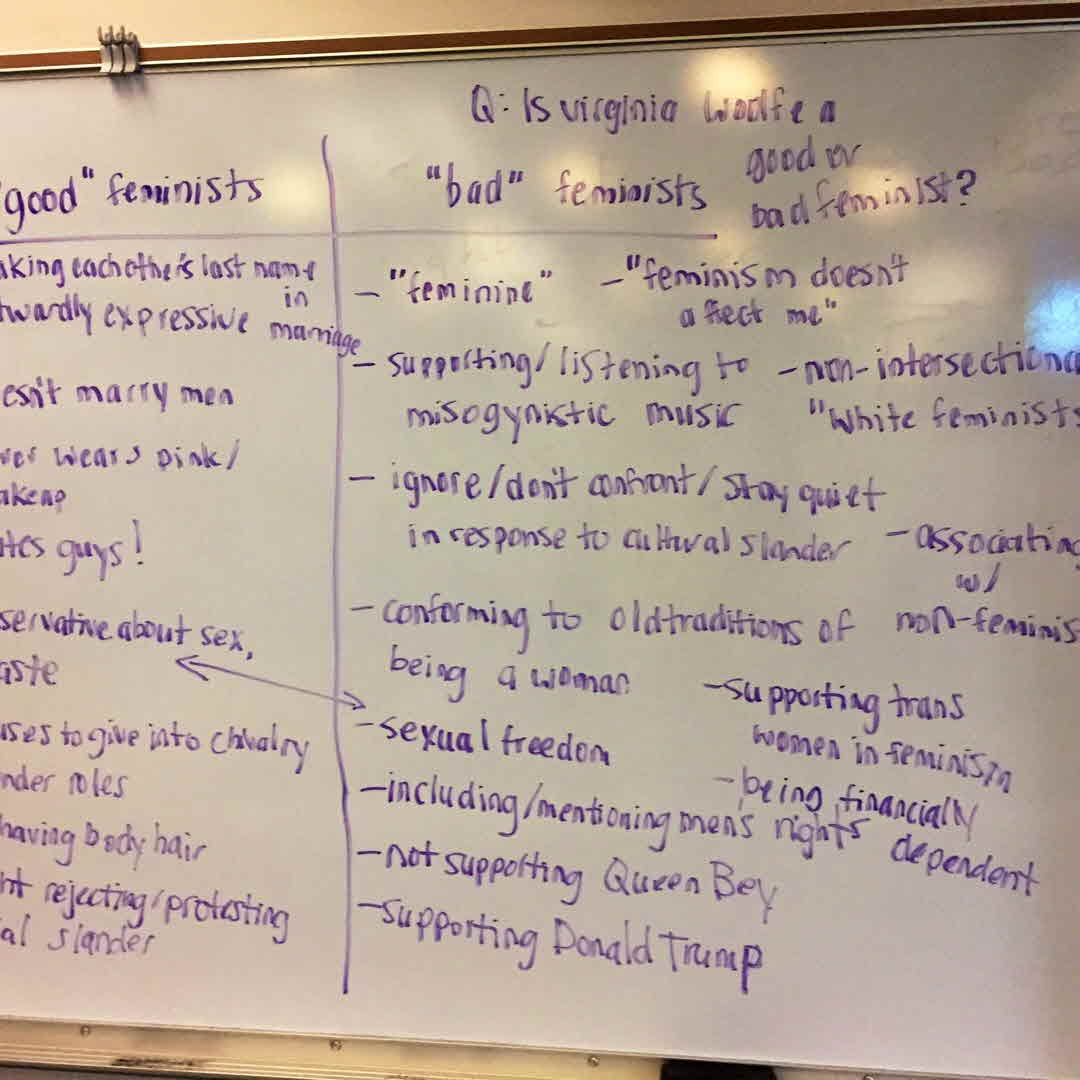 Q: Is virginia Woolfe a
good or
bad feminist?
"good" feminists
aking each other's last name
in
marriage
twardly expressive
esn't marry men
ver wears pink/
akeup
ates guys!
servative about sex,
aste
uses to give into chivalry
nder roles
having body hair
nt rejecting/protesting
al slander
"bad" feminists
- "feminine"
- supporting/listening to
misogynistic music
- ignore/don't confront/stay quiet
in response to cultural slander
- conforming to old traditions of
being a woman
- sexual freedom
- including/mentioning men's rights
- not supporting Queen Bey
- supporting Donald Trump
- "feminism doesn't
affect me"
- non-intersectiona
"White feminists
- associating
w/
non-feminis
- supporting trans
women in feminism
- being financially
dependent